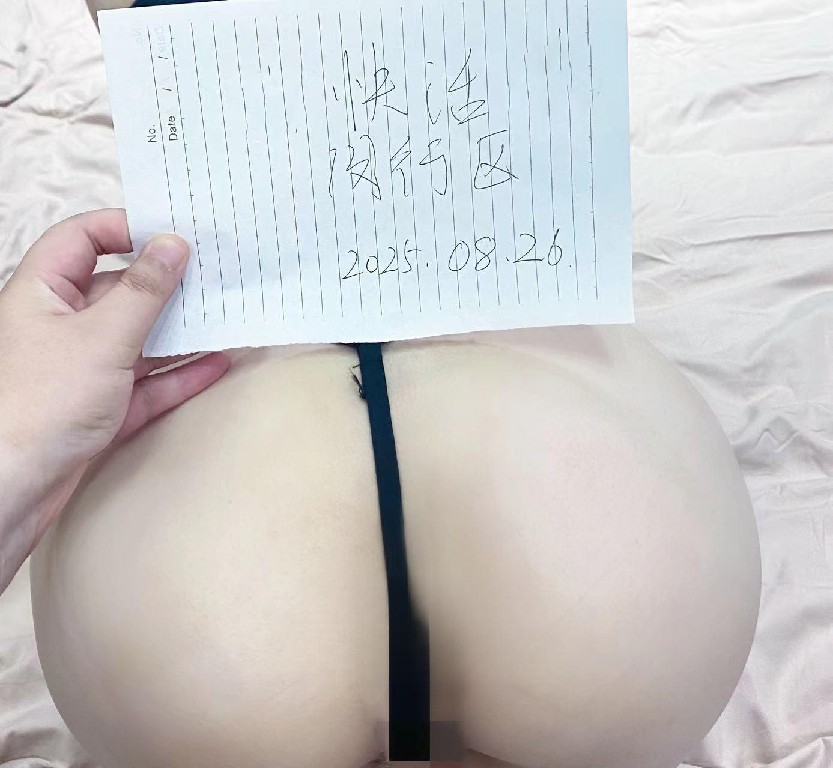 No.
Date
快活
闵行区
2025.08.26.